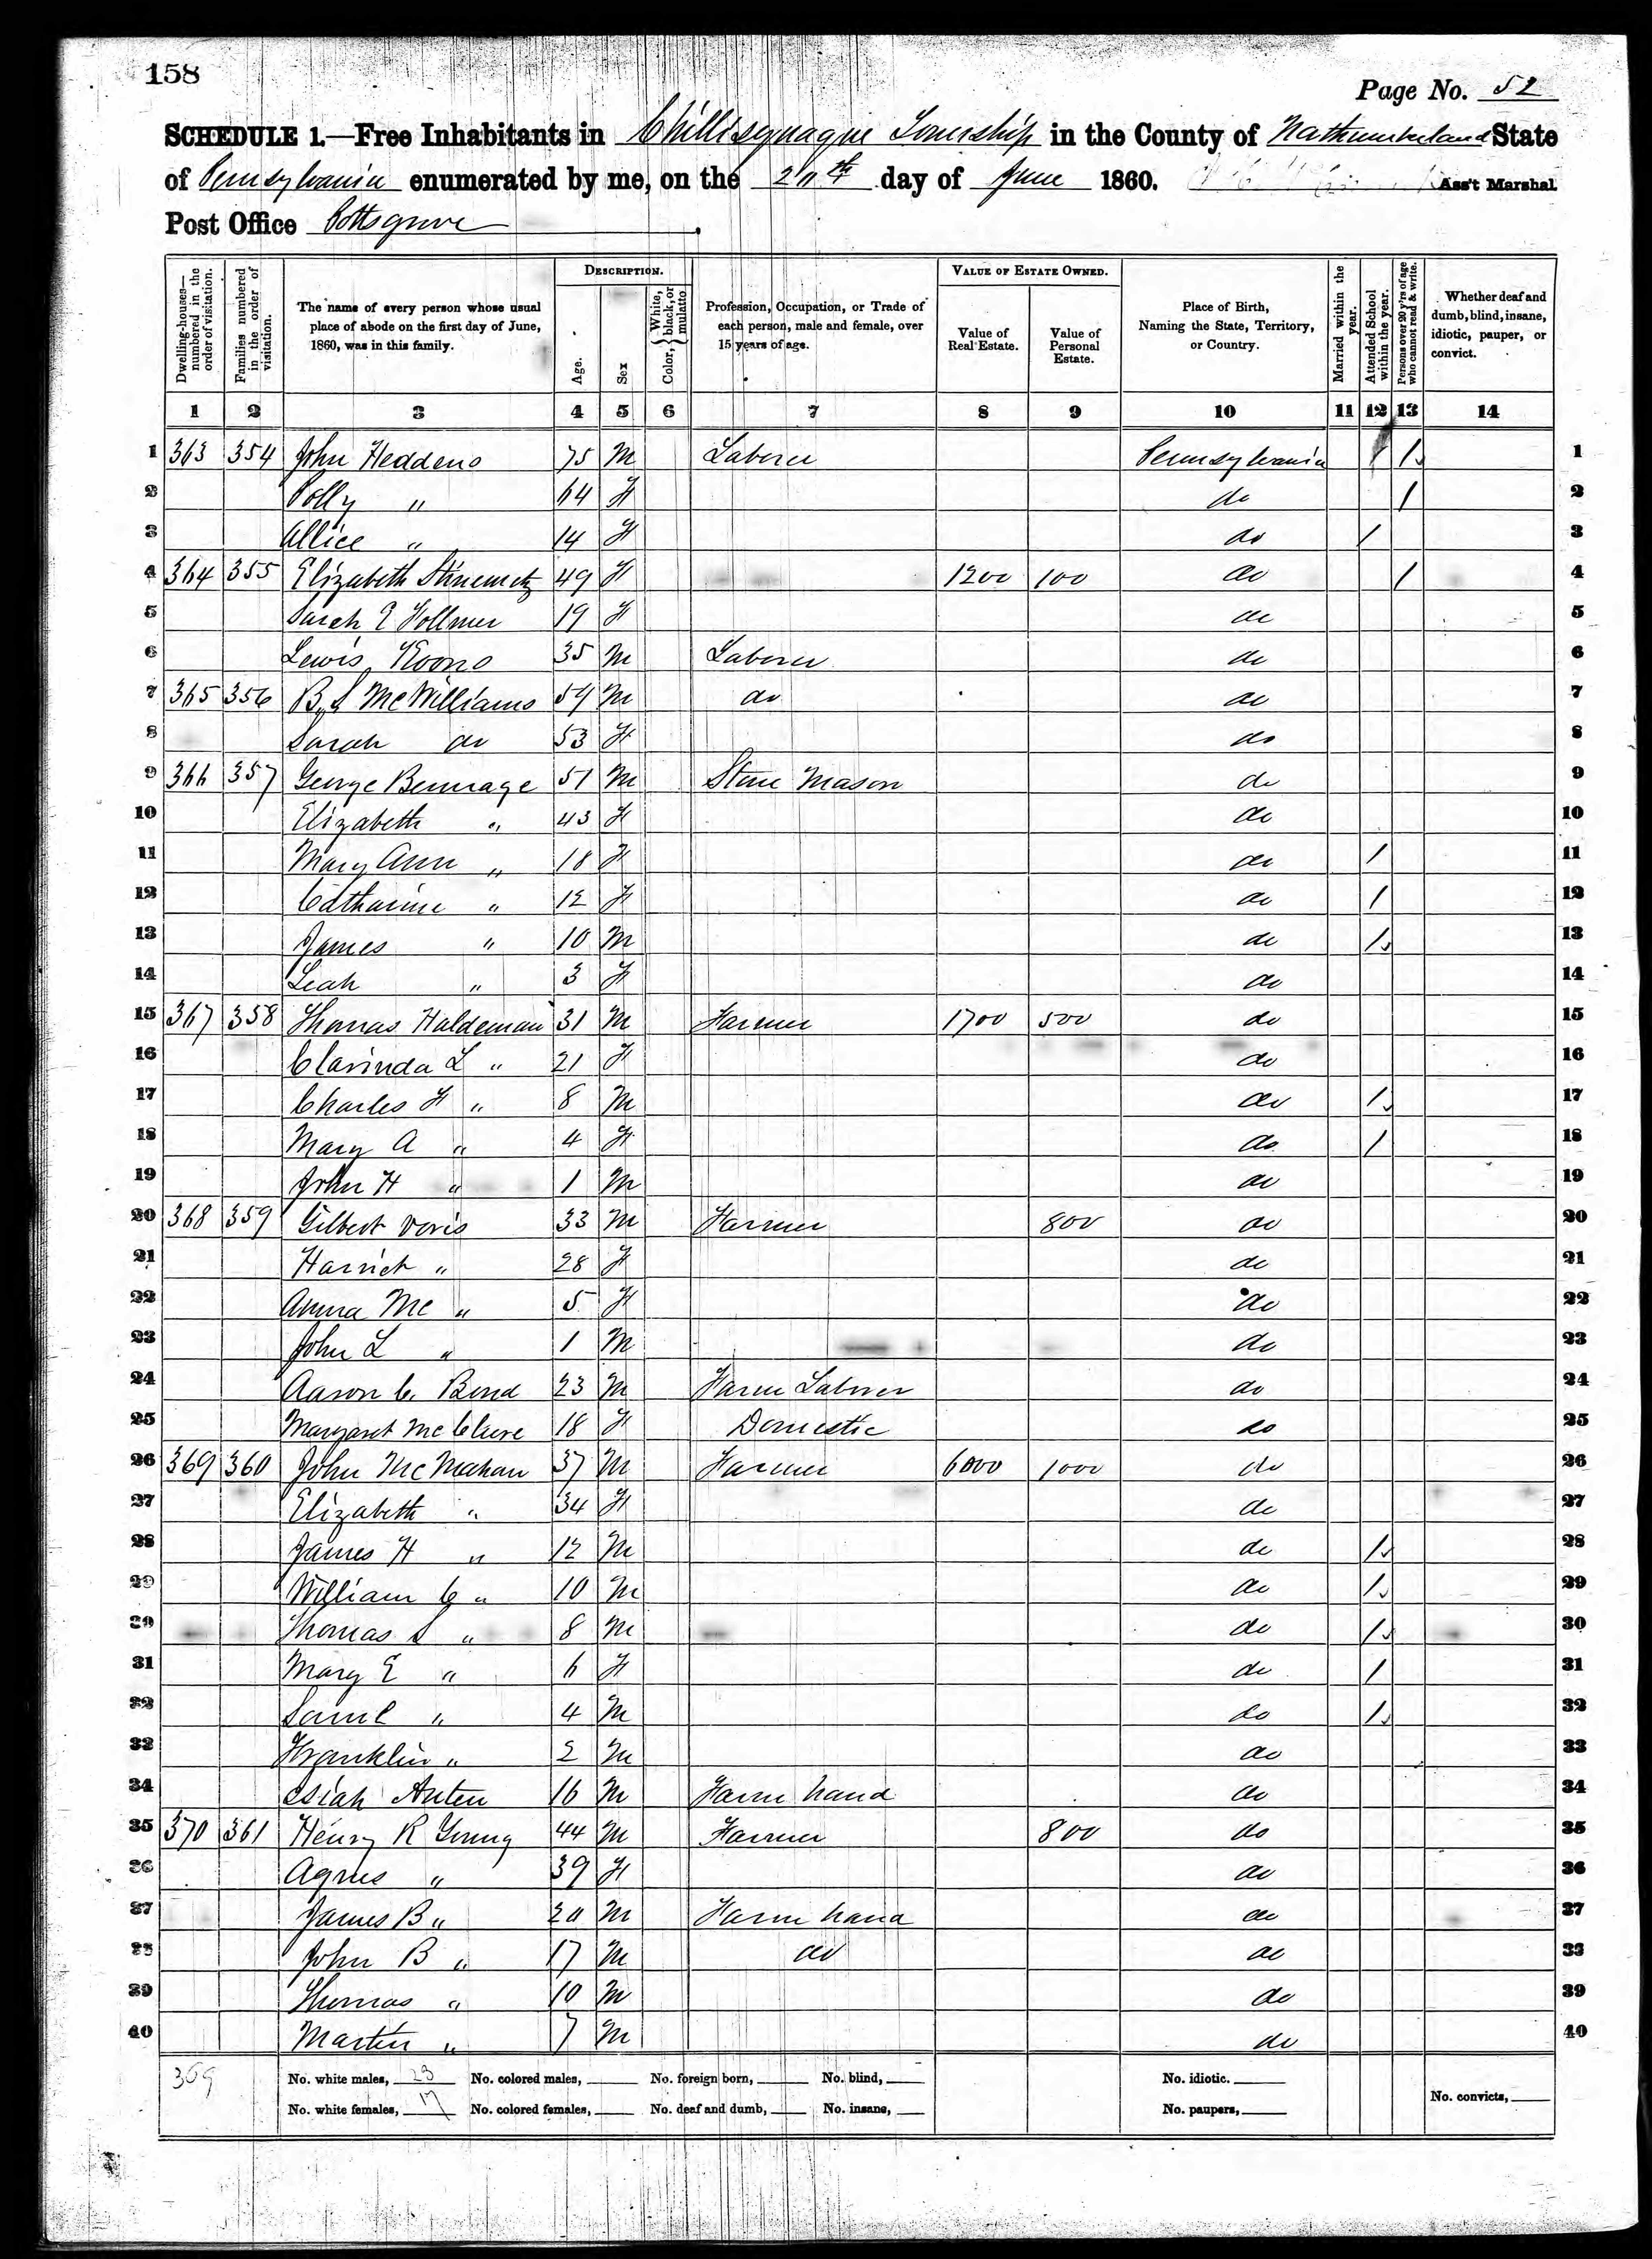 158
Page No. 52
SCHEDULE 1.—Free Inhabitants in Chillisquaque Township in the County of Northumberland State
of Pennsylvania enumerated by me, on the 20th day of June 1860. Ass't Marshal
Post Office Pottsgrove.
Dwelling-houses—numbered in the order of visitation. Families numbered in the order of visitation. The name of every person whose usual place of abode on the first day of June, 1860, was in this family. DESCRIPTION. Age. Sex Color, {White, black, or mulatto Profession, Occupation, or Trade of each person, male and female, over 15 years of age. VALUE OF ESTATE OWNED. Value of Real Estate. Value of Personal Estate. Place of Birth, Naming the State, Territory, or Country. Married within the year. Attended School within the year. Persons over 20 y'rs of age who cannot read & write. Whether deaf and dumb, blind, insane, idiotic, pauper, or convict.
1 2 3 4 5 6 7 8 9 10 11 12 13 14
1 363 354 John Heddens 75 M Laborer Pennsylvania / 1
2 Polly " 64 F do / 2
3 Allice " 14 F do / 3
4 364 355 Elizabeth Stinemetz 49 F 1200 100 do / 4
5 Sarah E Follmer 19 F do 5
6 Lewis Koons 35 M Laborer do 6
7 365 356 B S McWilliams 59 M do do 7
8 Sarah do 53 F do 8
9 366 357 George Bennage 51 M Stone Mason do 9
10 Elizabeth " 43 F do 10
11 Mary Ann " 18 F do / 11
12 Catharine " 12 F do / 12
13 James " 10 M do / 13
14 Leah " 3 F do 14
15 367 358 Thomas Haldeman 31 M Farmer 1700 500 do 15
16 Clarinda L " 21 F do 16
17 Charles F " 8 M do / 17
18 Mary A " 4 F do / 18
19 John H " 1 M do 19
20 368 359 Gilbert Voris 33 M Farmer 800 do 20
21 Harriet " 28 F do 21
22 Anna Mc " 5 F do 22
23 John L " 1 M do 23
24 Aaron C. Bond 23 M Farm Laborer do 24
25 Margaret McClure 18 F Domestic do 25
26 369 360 John McMahan 37 M Farmer 6000 1000 do 26
27 Elizabeth " 34 F do 27
28 James H " 12 M do / 28
29 William C " 10 M do / 29
30 Thomas S " 8 M do / 30
31 Mary E " 6 F do / 31
32 Saml " 4 M do / 32
33 Franklin " 2 M do 33
34 Isiah Auten 16 M Farm hand do 34
35 370 361 Henry R Young 44 M Farmer 800 do 35
36 Agnes " 39 F do 36
37 James B " 20 M Farm hand do 37
38 John B " 17 M do do 38
39 Thomas " 10 M do 39
40 Martin " 7 M do 40
369 No. white males, 23 No. colored males, No. foreign born, No. blind, No. idiotic.
No. white females, 17 No. colored females, No. deaf and dumb, No. insane, No. paupers, No. convicts,